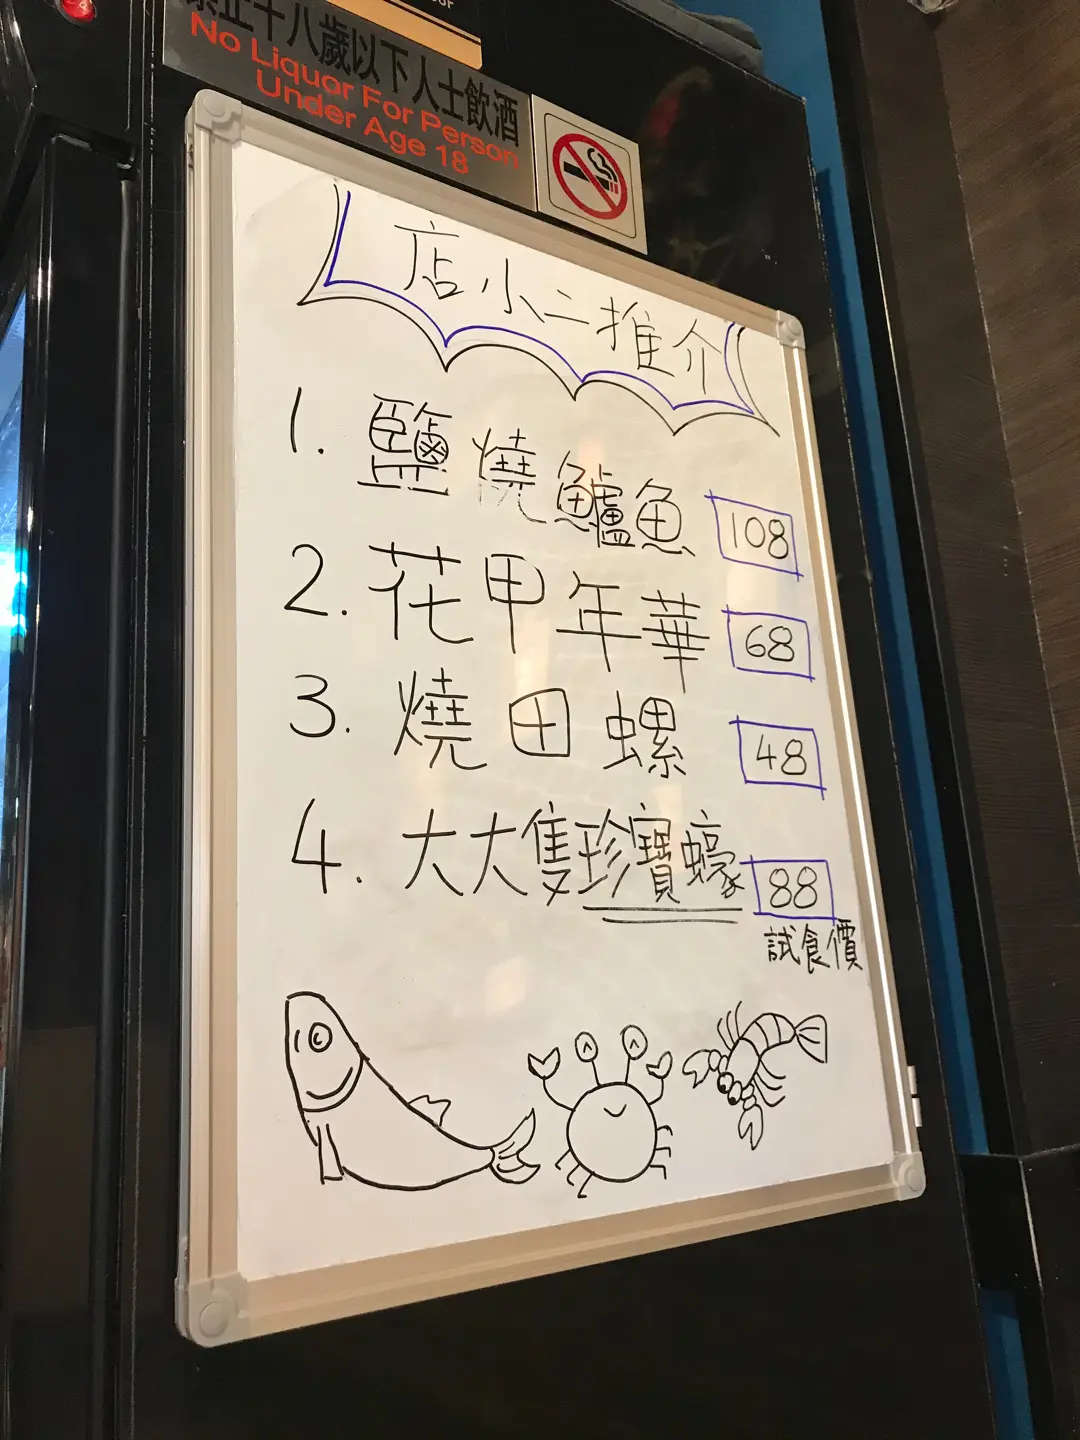 禁止十八歲以下人士飲酒
No Liquor For Person
Under Age 18
店小二推介
1. 鹽燒鱸魚 108
2. 花甲年華 68
3. 燒田螺 48
4. 大大隻珍寶蠔 88
試食價